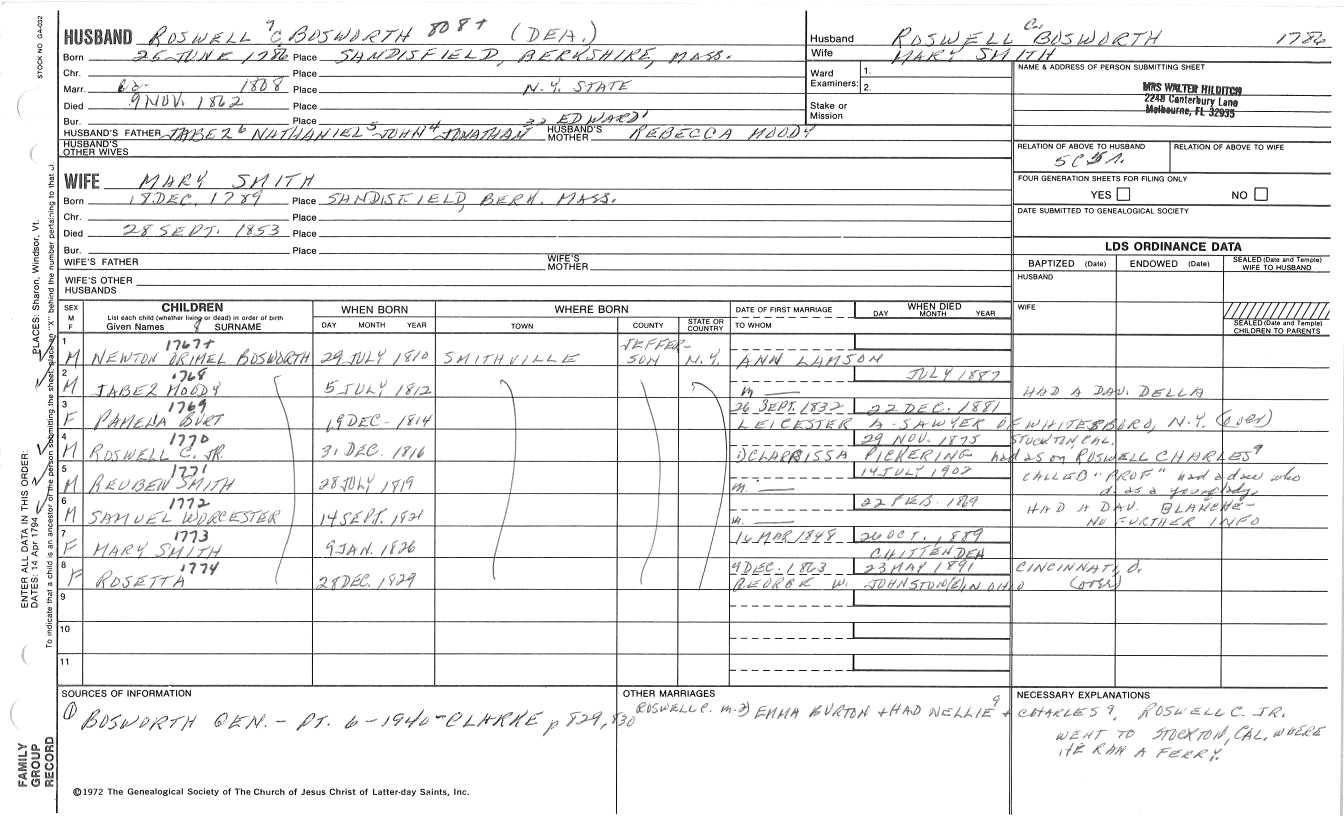 STOCK NO. GA-032
HUSBAND ROSWELL 7 C BOSWORTH 808+ (DEA.)
Born 25 JUNE 1786 Place SANDISFIELD, BERKSHIRE, MASS.
Chr. Place
Marr. ca. 1808 Place N.Y. STATE
Died 9 NOV. 1862 Place
Bur. Place
HUSBAND'S FATHER JABEZ 6 NATHANIEL 5 JOHN 4 JONATHAN 32 EDWARD 1 HUSBAND'S MOTHER REBECCA MOODY
HUSBAND'S OTHER WIVES
Husband ROSWELL C. BOSWORTH 1786
Wife MARY SMITH
Ward Examiners: 1.
2.
Stake or Mission
NAME & ADDRESS OF PERSON SUBMITTING SHEET
MRS WALTER HILDITCH
2248 Canterbury Lane
Melbourne, FL 32935
RELATION OF ABOVE TO HUSBAND RELATION OF ABOVE TO WIFE
FOUR GENERATION SHEETS FOR FILING ONLY
YES NO
DATE SUBMITTED TO GENEALOGICAL SOCIETY
WIFE MARY SMITH
Born 18 DEC. 1789 Place SANDISFIELD, BERK. MASS.
Chr. Place
Died 28 SEPT. 1853 Place
Bur. Place
WIFE'S FATHER WIFE'S MOTHER
WIFE'S OTHER HUSBANDS
LDS ORDINANCE DATA
BAPTIZED (Date) ENDOWED (Date) SEALED (Date and Temple) WIFE TO HUSBAND
HUSBAND
WIFE
SEALED (Date and Temple) CHILDREN TO PARENTS
SEX M F
CHILDREN
List each child (whether living or dead) in order of birth
Given Names 8 SURNAME
WHEN BORN
DAY MONTH YEAR
WHERE BORN
TOWN COUNTY STATE OR COUNTRY
DATE OF FIRST MARRIAGE
TO WHOM
WHEN DIED
DAY MONTH YEAR
1 M 1767+ NEWTON ORIMEL BOSWORTH 29 JULY 1810 SMITHVILLE JEFFERSON N.Y. ANN LAMSON
2 M 1768 JABEZ MOODY 5 JULY 1812 m — JULY 1887 HAD A DAU. DELLA
3 F 1769 PAMELA BURT 19 DEC - 1814 26 SEPT. 1832 22 DEC. 1881
LEICESTER A. SAWYER OF WHITESBORO, N.Y. (over)
4 M 1770 ROSWELL C. JR. 31 DEC. 1816 29 NOV. 1875 STOCKTON, CAL.
CLARRISSA PICKERING had a son ROSWELL CHARLES 9
5 M 1771 REUBEN SMITH 28 JULY 1819 m. — 14 JULY 1902 CALLED "PROF" had a dau who
d. as a young lady.
6 M 1772 SAMUEL WORCESTER 14 SEPT. 1821 m. — 22 FEB. 1869 HAD A DAU. BLANCHE -
NO FURTHER INFO
7 F 1773 MARY SMITH 9 JAN. 1826 16 MAR 1848 26 OCT. 1889
CHITTENDEN
8 F 1774 ROSETTA 28 DEC. 1829 9 DEC. 1863 23 MAY 1891 CINCINNATI, O.
GEORGE W. JOHNSTON(E) IN OHIO (over)
9
10
11
SOURCES OF INFORMATION
① BOSWORTH GEN. - PT. 6 - 1940 - CLARKE p 829, 830
OTHER MARRIAGES
ROSWELL C. m-2) EMMA BURTON + HAD NELLIE 9 + CHARLES 9,
NECESSARY EXPLANATIONS
ROSWELL C. JR.
WENT TO STOCKTON, CAL. WHERE
HE RAN A FERRY.
©1972 The Genealogical Society of The Church of Jesus Christ of Latter-day Saints, Inc.
ENTER ALL DATA IN THIS ORDER:
DATES: 14 Apr 1794 PLACES: Sharon, Windsor, Vt.
To indicate that a child is an ancestor of the person submitting the sheet, place an "X" behind the number pertaining to that
FAMILY
GROUP
RECORD